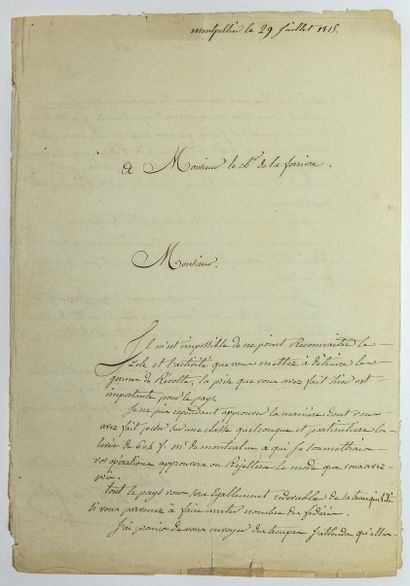 montpellier le 29 Juillet 1815.
a Monsieur le ch.er de la ferriere.
Monsieur.
Il m'est impossible de ne point Reconnaitre le
Zele et l'activité que vous mettez à détruire le
germe de Révolte, la prise que vous avez fait hier est
importante pour le pays.
Je ne puis cependant approuver la manière dont vous
avez fait peser sur une classe quelconque et particuliere la
levée de 604 f. Mr de montcalm a qui je soumettrai
vos opérations approuvera ou Rejettera le mode que vous avez
pris.
tout le pays vous sera également redevable de la tranquilité
si vous parvenez à faire arreter nombre de fédérés.
J'ai promis de vous envoyer des troupes J'attends qu'elles